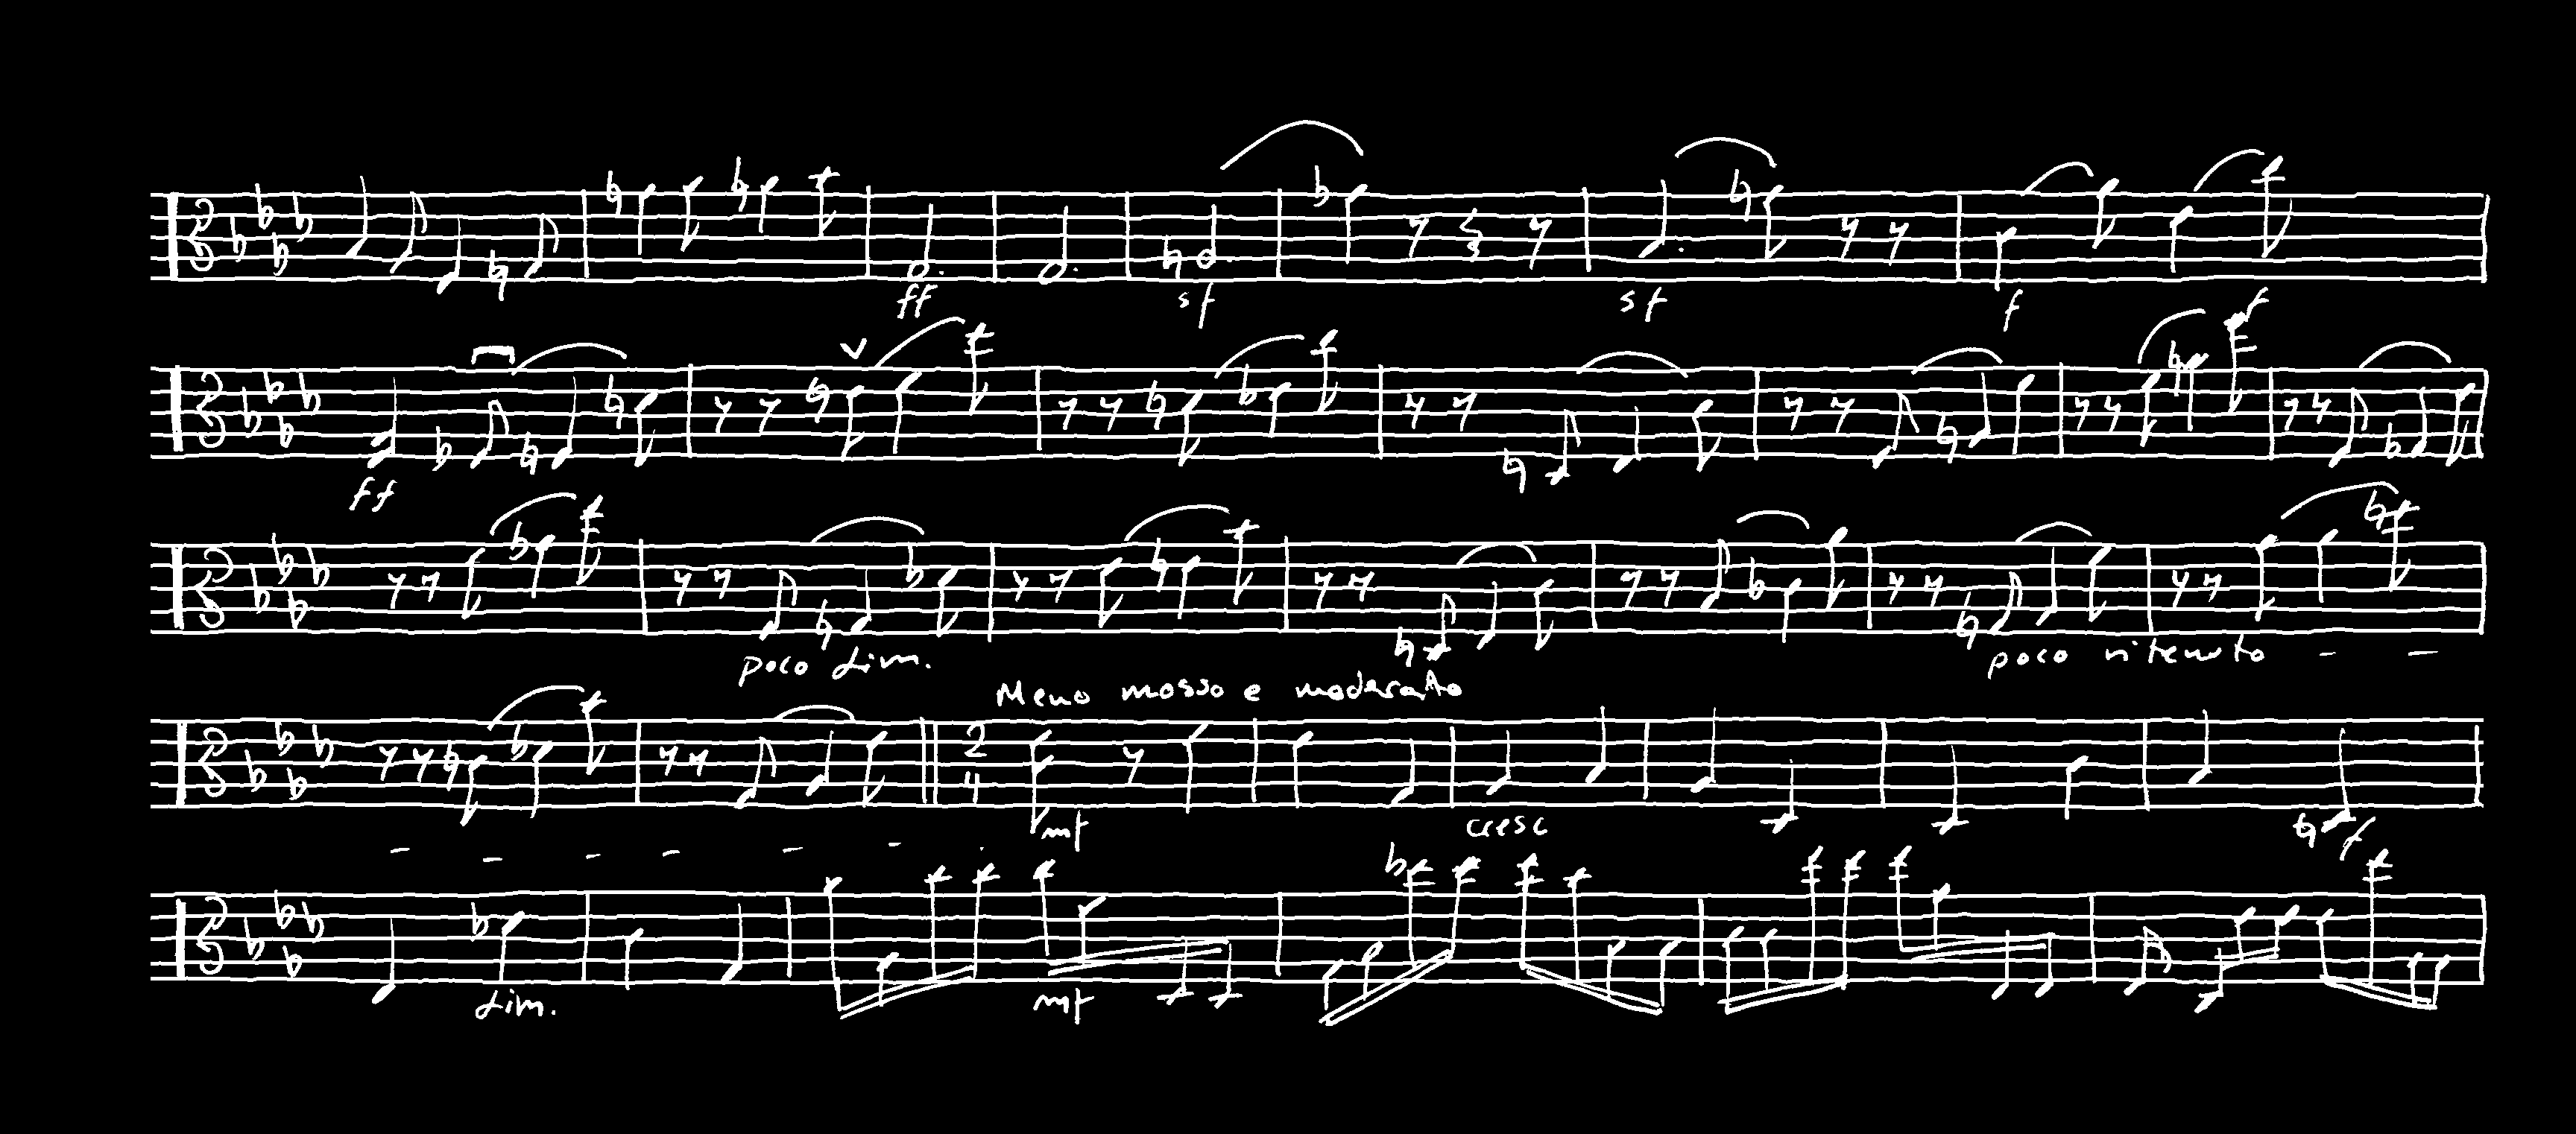 ff sf sf f f
ff
poco dim. poco ritenuto - -
Meno mosso e moderato
2 4 mf cresc f
- - - - - -
dim. mf